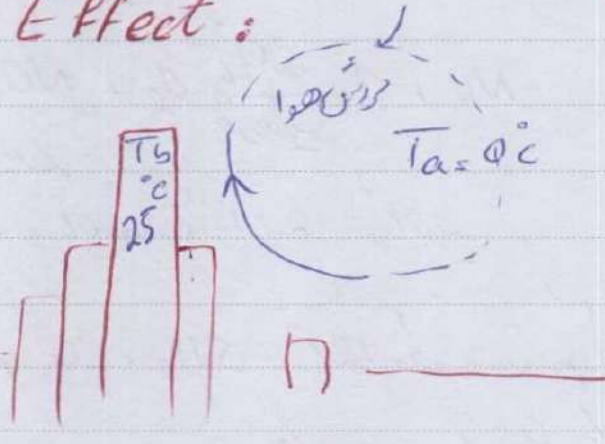 Effect :
گردش هوا
Ta = 0°C
Tb
°C
25